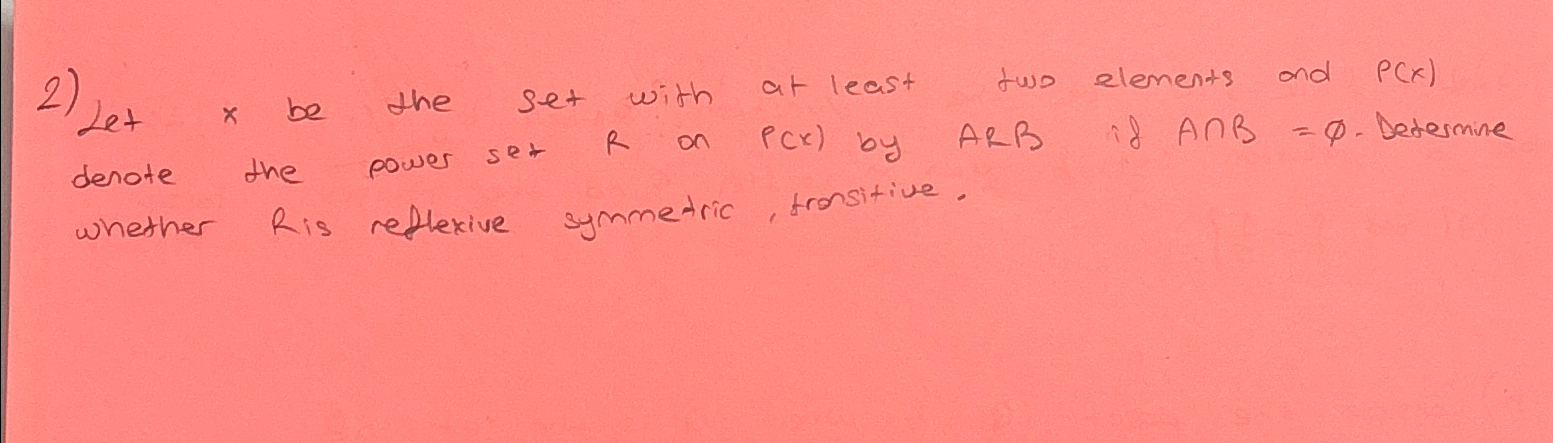 2) Let x be the set with at least two elements and P(x)
denote the power set R on P(x) by ARB if A∩B = ∅. Determine
whether R is reflexive symmetric, transitive.